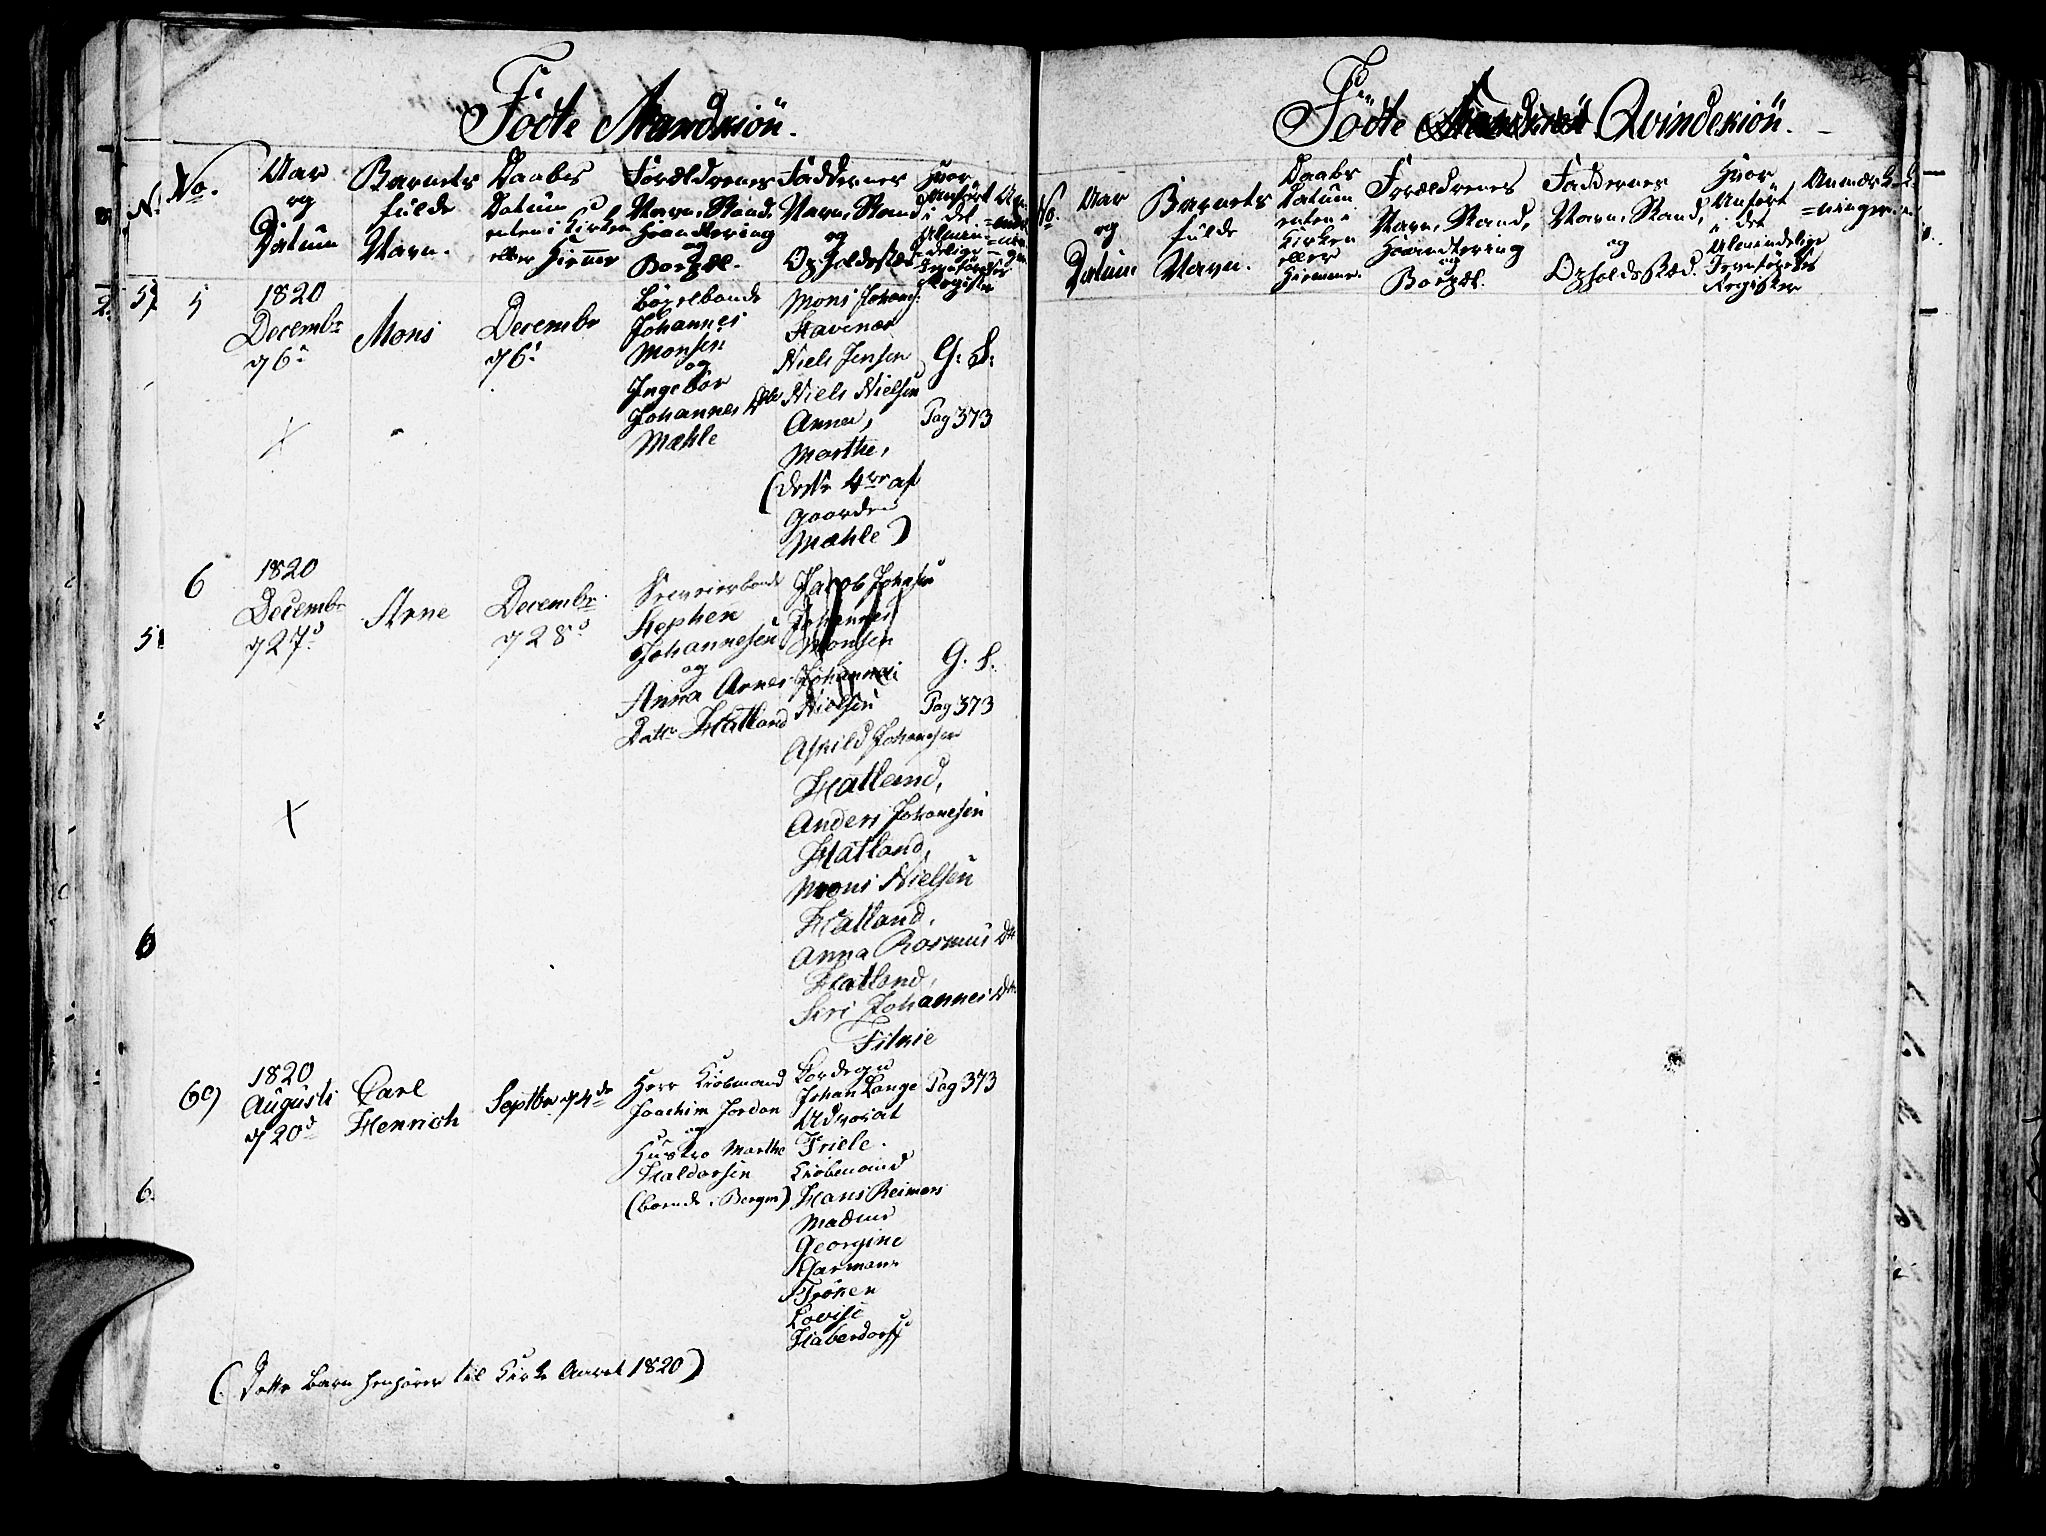 Födte Mandkiön.
No.
Aar
og
Datum
Barnets
fulde
Navn.
Daabs
Datum
enten i Kirken
eller Hiemme
Forældrenes
Navn, Stand,
Haandtering
og
Boepæl.
Faddernes
Navn, Stand
og
Opholdsted
Hvor
Anført
i det
Almin-
delige
Jevnførelses
Register
5
1820
Decembr
d 6te
Mons
Decembr
d 6te
Böxelbonde
Johannes
Monsen
og
Ingebor
Johannes Dtr
Mæhle
Mons Johans:
Havenær
Niels Jensen
Niels Nielsen
Anna,
Marthe,
(disse 4re af
Gaarden
Mæhle)
G. S.
Pag 373
6
1820
Decembr
d 27d
Arne
Decembr
d 28d
Stephen
Johannesen
og
Anna Arnes
Dattr Hatland
Jacob Johnsen
Johannes
Monsen
Johannes
Nielsen
Askild Johannesen
Hatland,
Anders Johanesen
Hatland,
Mons Nielsen
Hatland,
Anna Rasmus Dtr
Hatland,
Siri Johannes Dtr
Titnie
G. S.
Pag 373
1820
Augusti
d 20d
Carl
Henrich
Septbr d 4de
Herr Kiöbmand
Joachim Jordan
og
Hustro Marthe
Haldorsen
(boende i Bergen)
Sordegn
Johan Lange
Advocat
Friele.
Kiöbmand
Hans Reimers
Madme
Georgine
Garmann
Fröken
Lovise
Haberdorff
Pag 373
(Dette Barn henhörer til Kirke Aaret 1820)
Födte Qvindekiön.
No.
Aar
og
Datum
Barnets
fulde
Navn.
Daabs
Datum
enten i
Kirken
eller
Hiemme.
Forældrenes
Navn, Stand,
Haandtering
og
Boepæl.
Faddernes
Navn, Stand,
og
Opholds Stæd.
Hvor
Anført
i det
Almindelige
Jevnførelses
Register
Anmærk-
ninger